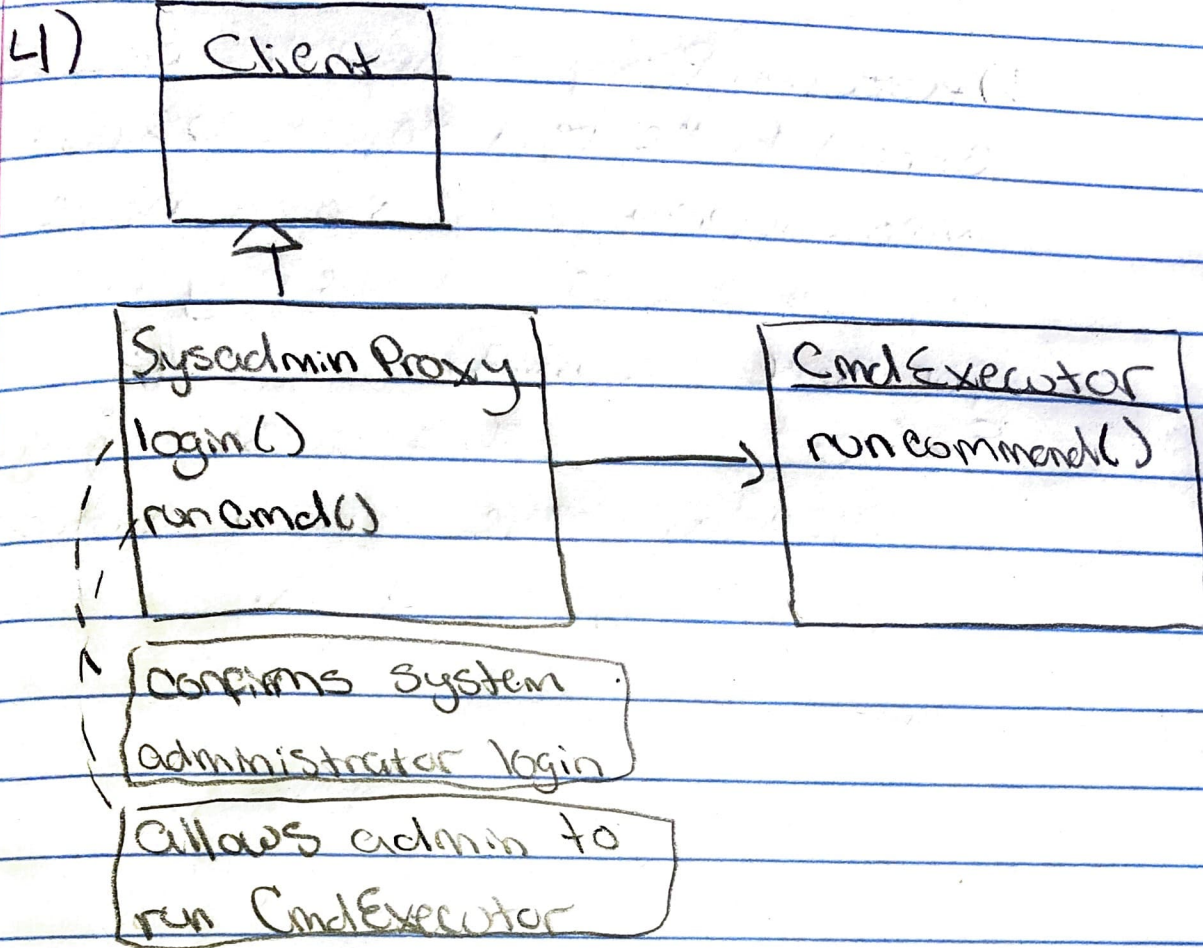 4)
Client
Sysadmin Proxy
login()
runCmd()
CmdExecutor
runCommand()
confirms system
administrator login
allows admin to
run CmdExecutor